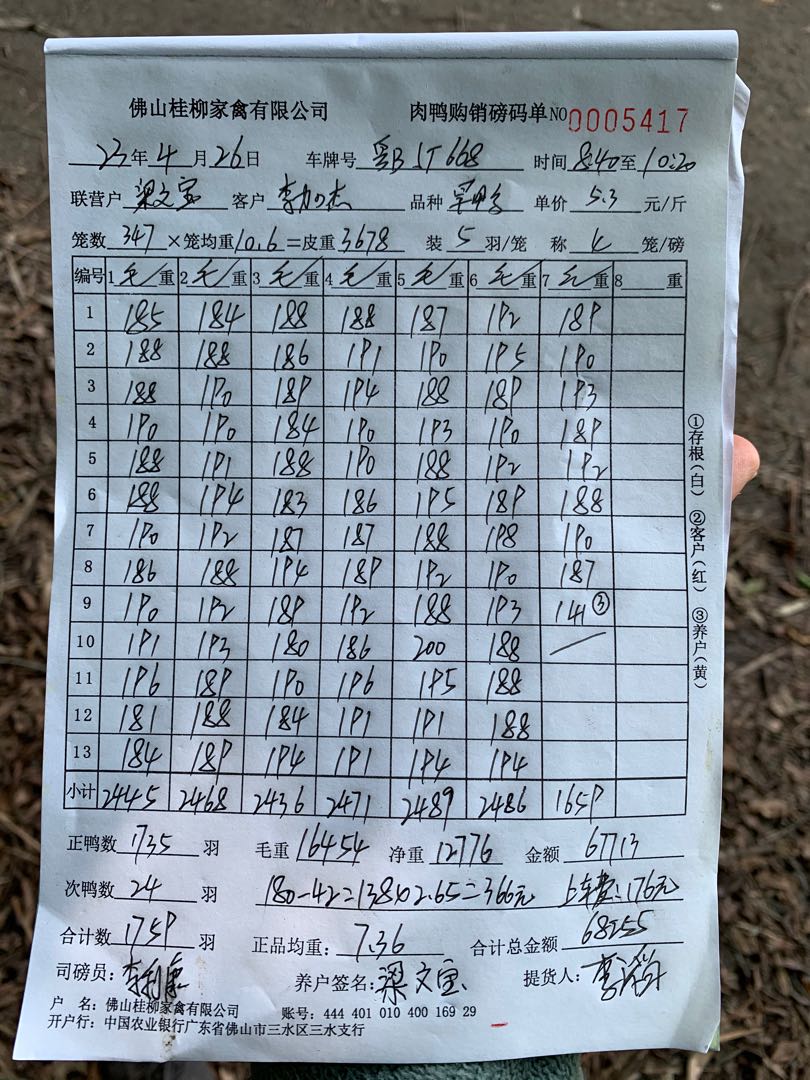 佛山桂柳家禽有限公司 肉鸭购销磅码单 NO 0005417
23年4月26日 车牌号 粤B JT668 时间 8:40至10:20
联营户 梁文宝 客户 品种 单价 5.3 元/斤
笼数 347 ×笼均重 10.6 =皮重 3678 装 5 羽/笼 称 4 笼/磅
编号 1 毛/重 2 毛/重 3 毛/重 4 毛/重 5 毛/重 6 毛/重 7 毛/重 8 重
1 185 184 188 188 187 192 189
2 188 188 186 191 190 195 190
3 188 190 189 194 188 189 193
4 190 190 184 190 193 190 189
5 188 191 188 190 188 192 192
6 188 194 183 186 195 189 188
7 190 192 187 187 188 198 190
8 186 188 194 189 192 190 187
9 190 192 189 192 188 193 141 ③
10 191 193 180 186 200 188 /
11 196 189 190 196 195 188
12 181 188 184 191 191 188
13 184 189 194 191 194 194
小计 2445 2468 2436 2471 2489 2486 1659
正鸭数 1735 羽 毛重 16454 净重 12776 金额 67713
次鸭数 24 羽 180-42=138×2.65=366元 上车费:176元
合计数 1759 羽 正品均重: 7.36 合计总金额 68255
司磅员: 养户签名: 梁文宝 提货人:
户 名: 佛山桂柳家禽有限公司 账号: 444 401 010 400 169 29
开户行: 中国农业银行广东省佛山市三水区三水支行
①存根(白) ②客户(红) ③养户(黄)